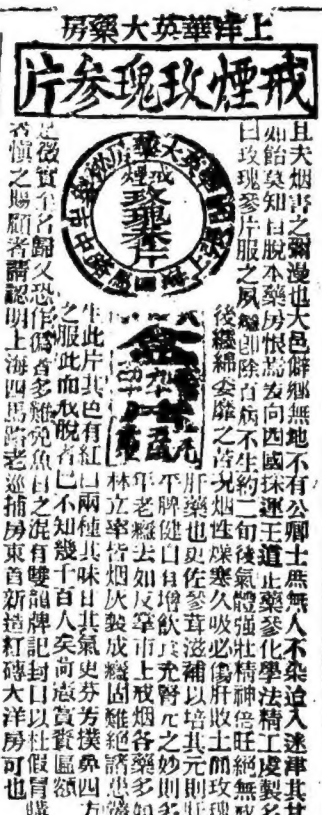 上洋華英大藥房
戒煙玫瑰參片
戒煙
玫瑰參片
且夫烟害之彌漫也大邑僻鄉無地不有公卿士庶無人不染迨入迷津其甘
如飴莫知自脫本藥房焉友向西國採運王道止藥參化學法精工虔製名
曰玫瑰參片服之夙癮即除百病不生約二旬後氣體強壯精神倍旺絕無敗
後纏綿委靡之苦況烟性燥寒久吸必傷肝敗土而玫瑰
肝藥也更佐參茸滋補以培其元則肝
平脾健自有增飲食充腎元之妙則多
年老癮去如反掌市上戒烟各藥多如
林立率皆烟灰製成癮固難絕諸患
生此片其色有紅白兩種其味甘其氣更芬芳撲鼻四方
之服此而戒脫者已不知幾千百人矣荷蒙賞賚匾額
足徵實至名歸又恐作僞者多難免魚目之混有雙龍牌記封口以杜假冒購
者慎之賜顧者請認明上海四馬路老巡捕房東首新造紅磚大洋房可也